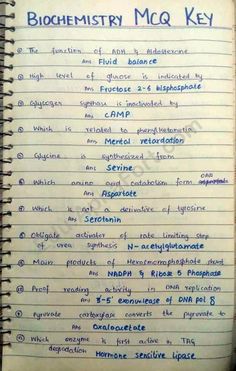 BIOCHEMISTRY MCQ KEY
The function of ADH & Aldosterone
Ans Fluid balance
High level of glucose is indicated by
Ans Fructose 2-6 bisphosphate
Glycogen synthase is inactivated by
Ans cAMP
Which is related to phenylketonuria
Ans Mental retardation
Glycine is synthesized from
Ans Serine
Which amino acid catabolism form OAA
Ans Aspartate
Which is not derivative of tyrosine
Ans Serotonin
Obligate activator of rate limiting step
of urea synthesis N-acetylglutamate
Main products of Hexosemonophosphate shunt
Ans NADPH & Ribose 5 Phosphate
Proof reading activity in DNA replication
Ans 3'-5' exonuclease of DNA pol
Pyruvate carboxylase converts the pyruvate to
Ans Oxaloacetate
Which enzyme is first active in TAG
degradation Hormone sensitive lipase